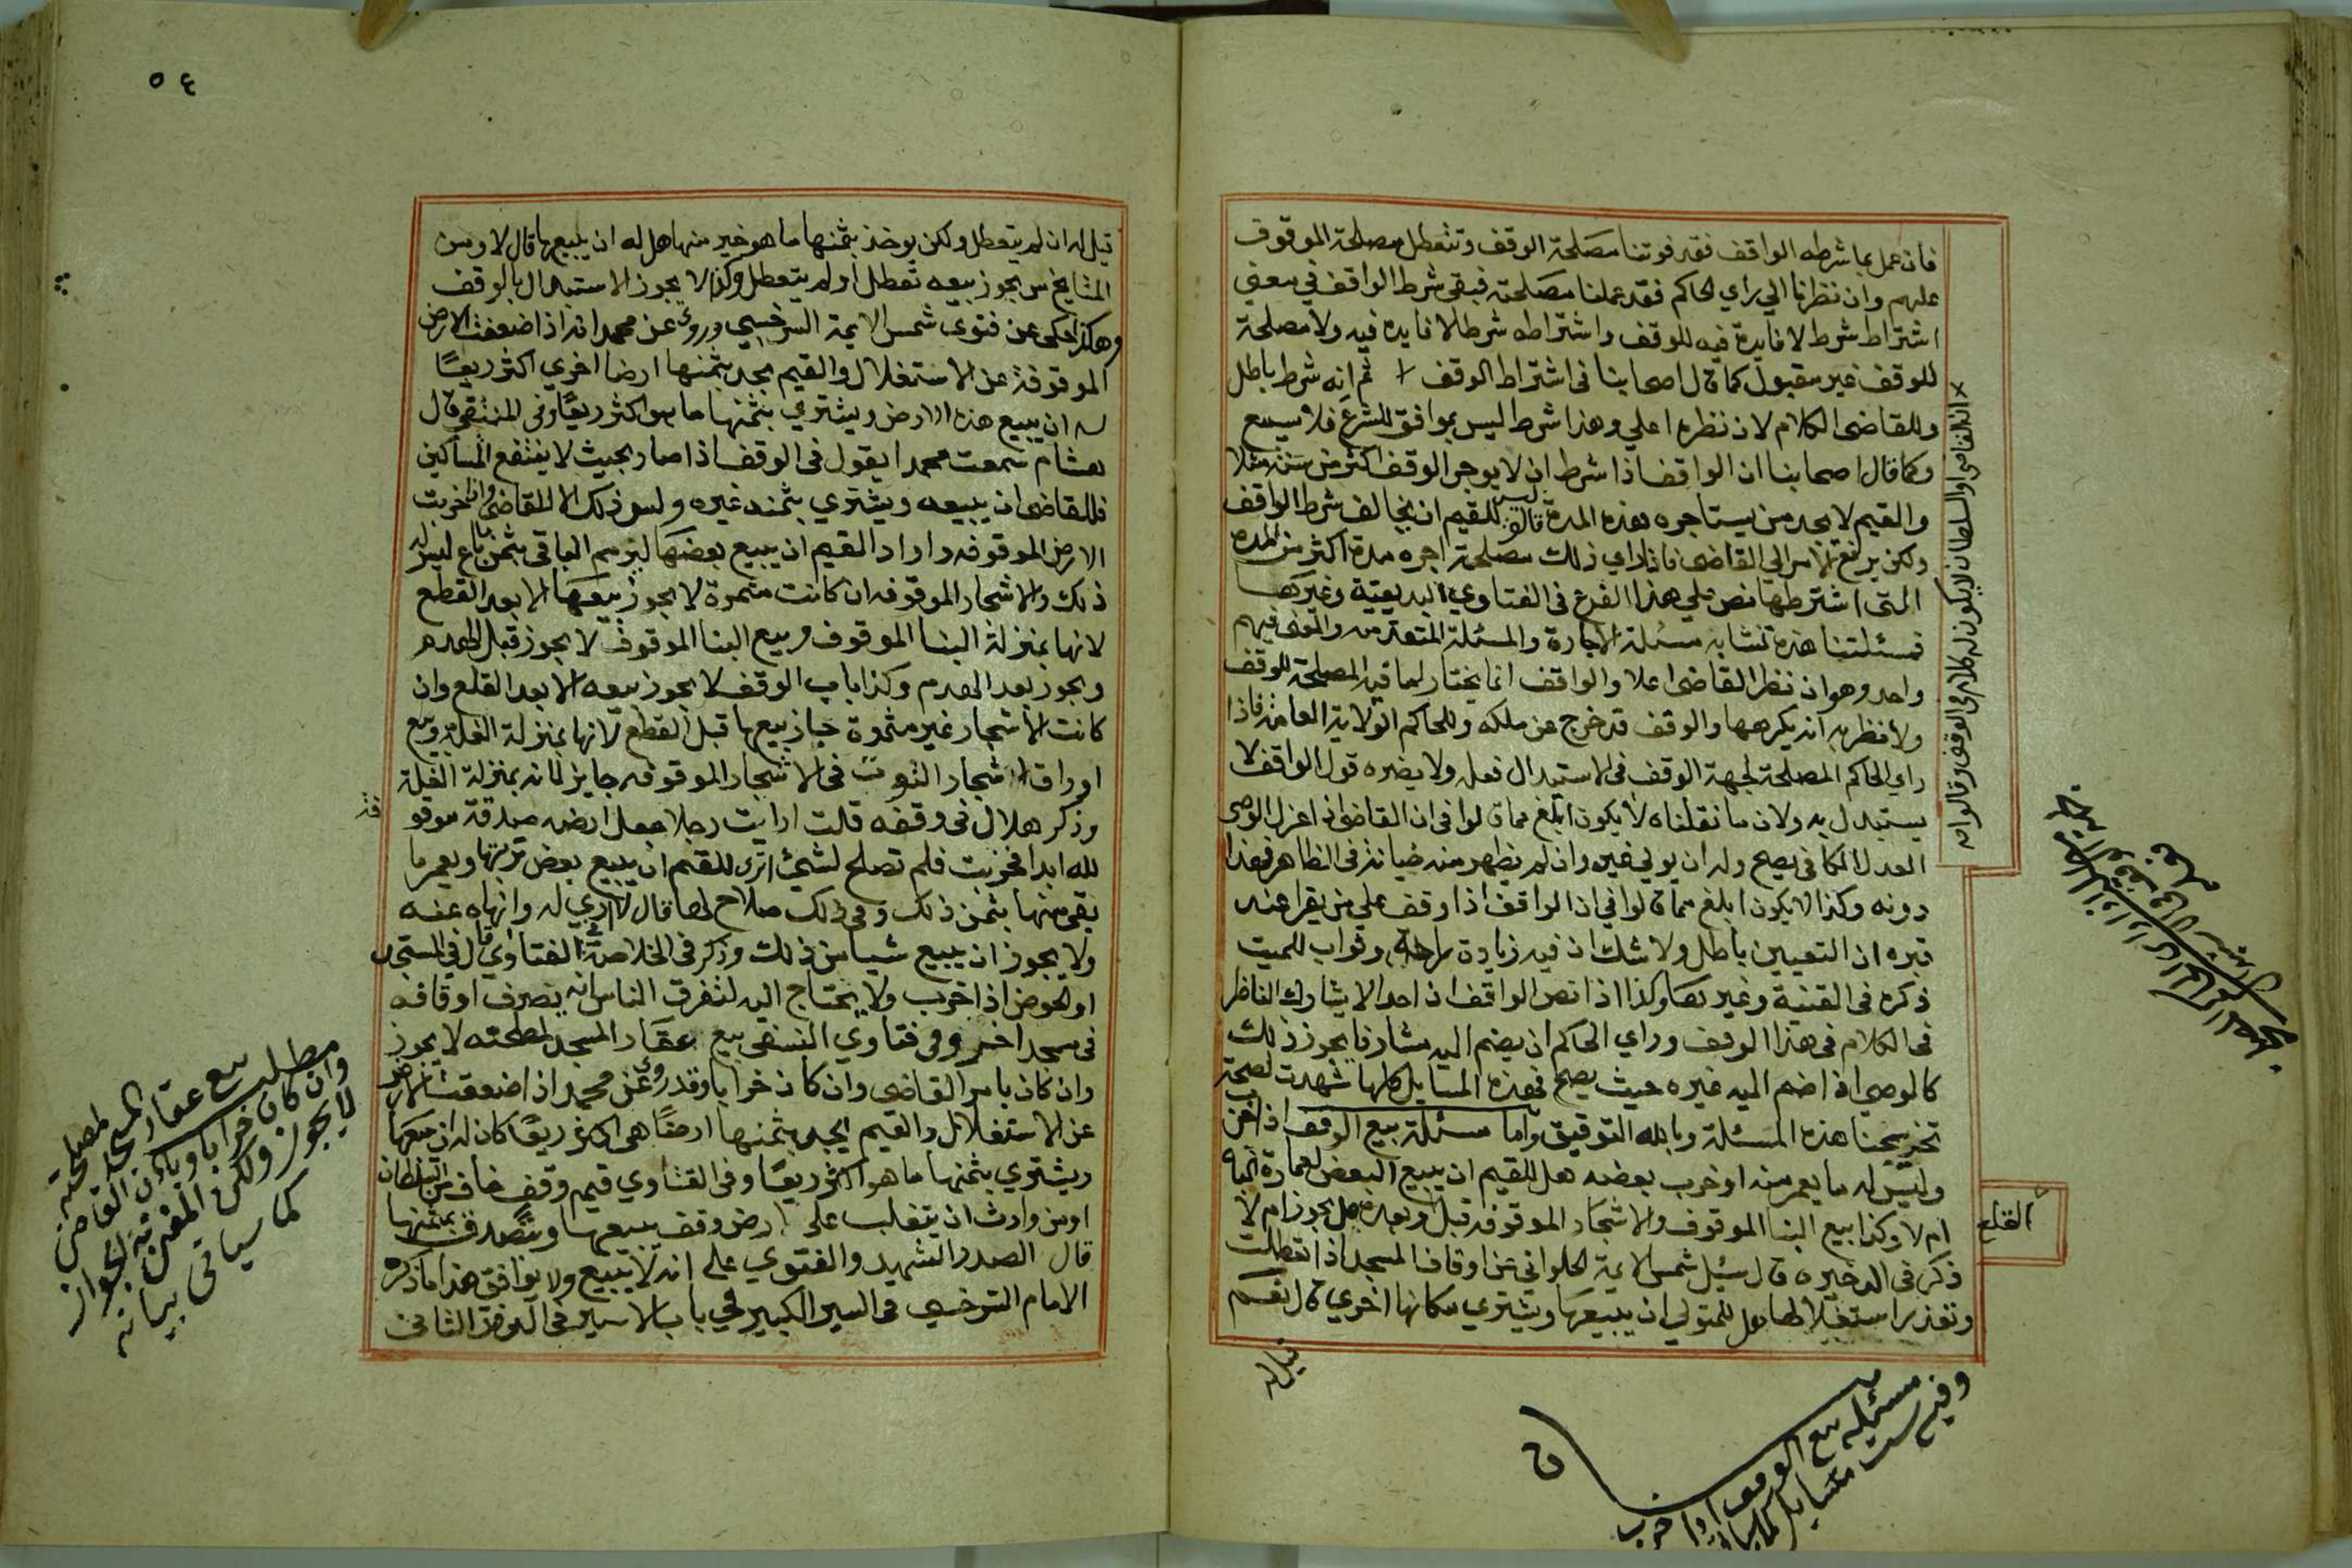 فان عمل بما شرطه الواقف فقد فوتنا مصلحة الوقف وتتعطل مصلحة الموقوف
عليهم وان نظرنا الي راي الحاكم فقد عملنا مصلحته فبقي شرط الواقف في معني
اشتراط شرط لا فايدة فيه للوقف واشتراطه شرطا لا فايدة فيه ولا مصلحة
للوقف غير مقبول كما قال اصحابنا في اشتراط الوقف ثم انه شرط باطل
انه القاضي او السلطان لا يكون له كلام في الوقف وقالوا انه
وللقاضي الكلام لان نظره اعلي وهذا شرط ليس بموافق للشرع فلا يسمع
وكما قال اصحابنا ان الواقف اذا شرط ان لا يوجر الوقف اكثر من سنة مثلا
والقيم لا يجد من يستاجره هذه المدة قالوا ليس للقيم ان يخالف شرط الواقف
ولكن يرفع الامر الي القاضي فاذا راي ذلك مصلحة اجره مدة اكثر من المدة
التي اشترطها نص علي هذا الفرع في الفتاوي البديعية وغيرها
فمسئلتنا هذه تشابه مسئلة الاجارة والمسئلة المتقدمة والمعني فيهم
واحد وهو ان نظر القاضي اعلا والواقف انما يختار لما فيه المصلحة للوقف
ولا نظن به انه يكرهها والوقف قد خرج عن ملكه وللحاكم الولاية العامة فاذا
راي الحاكم المصلحة لجهة الوقف في الاستبدال فعله ولا يضره قول الواقف لا
يستبدل به ولان ما نقلناه لا يكون ابلغ مما قالوا في ان القاضي اذا عزل الوصي
العدل الكافي يصح وله ان يولي غيره وان لم يظهر منه خيانة في الظاهر فهذا
دونه وكذا لا يكون ابلغ مما قالوا في ان الواقف اذا وقف علي من يقرا عند
قبره ان التعيين باطل ولا شك ان فيه زيادة راحة وثواب للميت
ذكره في القنية وغيرها وكذا اذا نص الواقف ان احدا لا يشارك الناظر
في الكلام في هذا الوقف وراي الحاكم ان يضم اليه مشارفا يجوز ذلك
كالوصي اذا ضم اليه غيره حيث يصح فهذه المسايل كلها شهدت لصحة
تخريجنا هذه المسئلة وبالله التوفيق واما مسئلة بيع الوقف اذا خرب
وليس له ما يعمر منه او خرب بعضه هل للقيم ان يبيع البعض لعمارة الباقي
ام لا وكذا بيع البنا الموقوف والاشجار الموقوفة قبل وبعده هل يجوز ام لا
القلع
ذكر في الذخيره قال سيل شمس الايمة الحلواني عن اوقاف المسجد اذا تعطلت
وتعذر استغلالها هل للمتولي ان يبيعها ويشتري مكانها اخري قال نعم
قيل له
مسئله بيع الوقف اذا خرب
وفيه ست مسايل
٥٤
قيل له ان لم يتعطل ولكن يوخذ بثمنها ما هو خير منها هل له ان يبيعها قال لا ومن
المشايخ من يجوز بيعه تعطل او لم يتعطل وكذا لا يجوز الاستبدال بالوقف
وهكذا حكي عن فتوي شمس الايمة السرخسي وروي عن محمد انه اذا ضعفت الارض
الموقوفة عن الاستغلال والقيم يجد بثمنها ارضا اخري اكثر ريعا
له ان يبيع هذه الارض ويشتري بثمنها ما هو اكثر ريعا وفي المنتقي قال
هشام سمعت محمدا يقول في الوقف اذا صار بحيث لا ينتفع المساكين
فللقاضي ان يبيعه ويشتري بثمنه غيره وليس ذلك الا للقاضي وان خربت
الارض الموقوفه واراد القيم ان يبيع بعضها ليرم الباقي بثمن ما باع ليس له
ذلك والاشجار الموقوفه ان كانت مثمرة لا يجوز بيعها الا بعد القطع
لانها بمنزلة البنا الموقوف وبيع البنا الموقوف لا يجوز قبل الهدم
ويجوز بعد الهدم وكذا باب الوقف لا يجوز بيعه الا بعد القلع وان
كانت الاشجار غير مثمرة جاز بيعها قبل القطع لانها بمنزلة الغلة وبيع
اوراق اشجار التوت في الاشجار الموقوفه جايز لانه بمنزلة الغلة
وذكر هلال في وقفه قلت ارايت رجلا جعل ارضه صدقة موقو
فة
لله ابدا فخربت فلم تصلح لشيئ اتري للقيم ان يبيع بعض تربتها ويعمر ما
بقي منها بثمن ذلك وفي ذلك صلاح لها قال لا اري له وانهاه عنه
ولا يجوز ان يبيع شيا من ذلك وذكر في الخلاصة الفتاوي قال في المسجد
او الحوض اذا خرب ولا يحتاج اليه لتفرق الناس انه يصرف اوقافه
في مسجد اخر وفي فتاوي النسفي بيع عقار المسجد لمصلحته لا يجوز
وان كان بامر القاضي وان كان خرابا وقد روي عن محمد اذا ضعفت الارض
عن الاستغلال والقيم يجد بثمنها ارضا هي اكثر ريعا كان له ان يبيعها
ويشتري بثمنها ما هو اكثر ريعا وفي الفتاوي قيم وقف خاف من السلطان
او من وارث ان يتغلب علي ارض وقف يبيعها ويتصدق بثمنها
قال الصدر الشهيد والفتوي علي انه لا يبيع ولا يوافق هذا ما ذكره
الامام السرخسي في السير الكبير في باب الاسير في الورق الثاني
مطلب بيع عقار المسجد لمصلحته
وان كان خرابا وباذن القاضي
لا يجوز ولكن المفتي به الجواز
كما سياتي بيانه